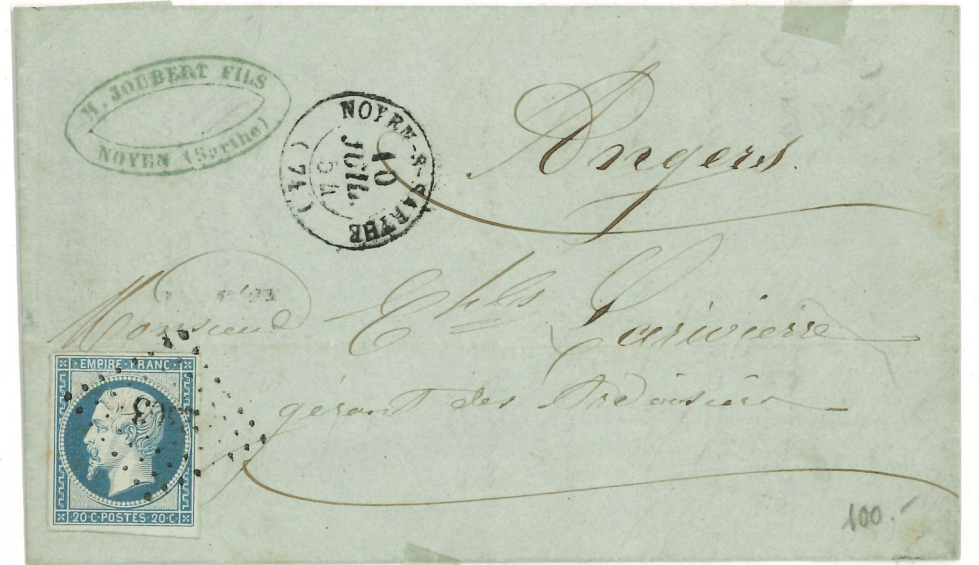 M. JOUBERT FILS
NOYEN (Sarthe)
NOYEN-S-SARTHE
10
JUIL.
54
(74)
Angers.
Monsieur Chles Larivierre
gérant des Ardoisières
EMPIRE-FRANC
20·C·POSTES·20·C
100.-